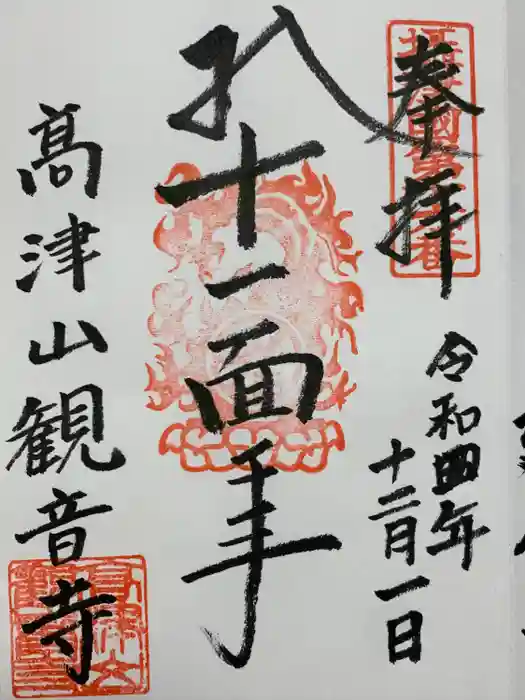 奉拝
令和四年
十二月一日
十一面手
髙津山観音寺